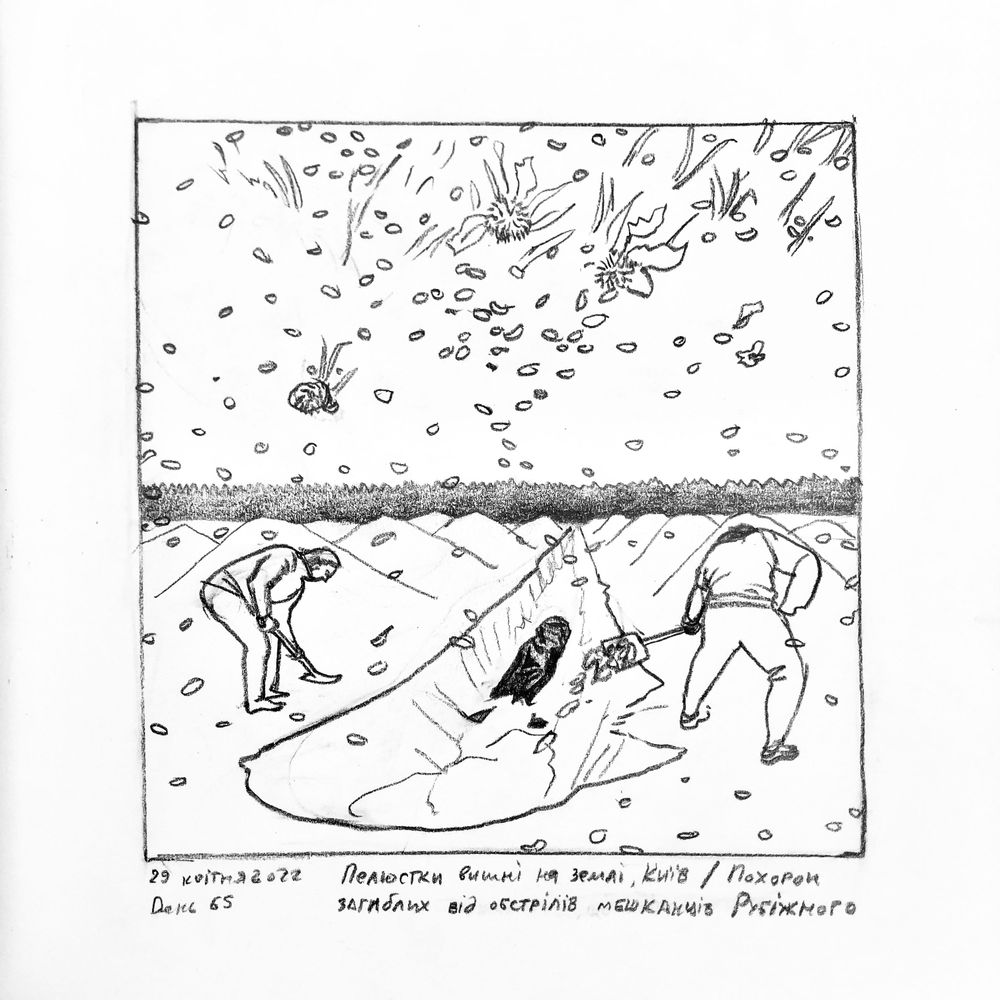 29 квітня 2022
День 65
Пелюстки вишні на землі, Київ / Похорон
загиблих від обстрілів мешканців Рубіжного